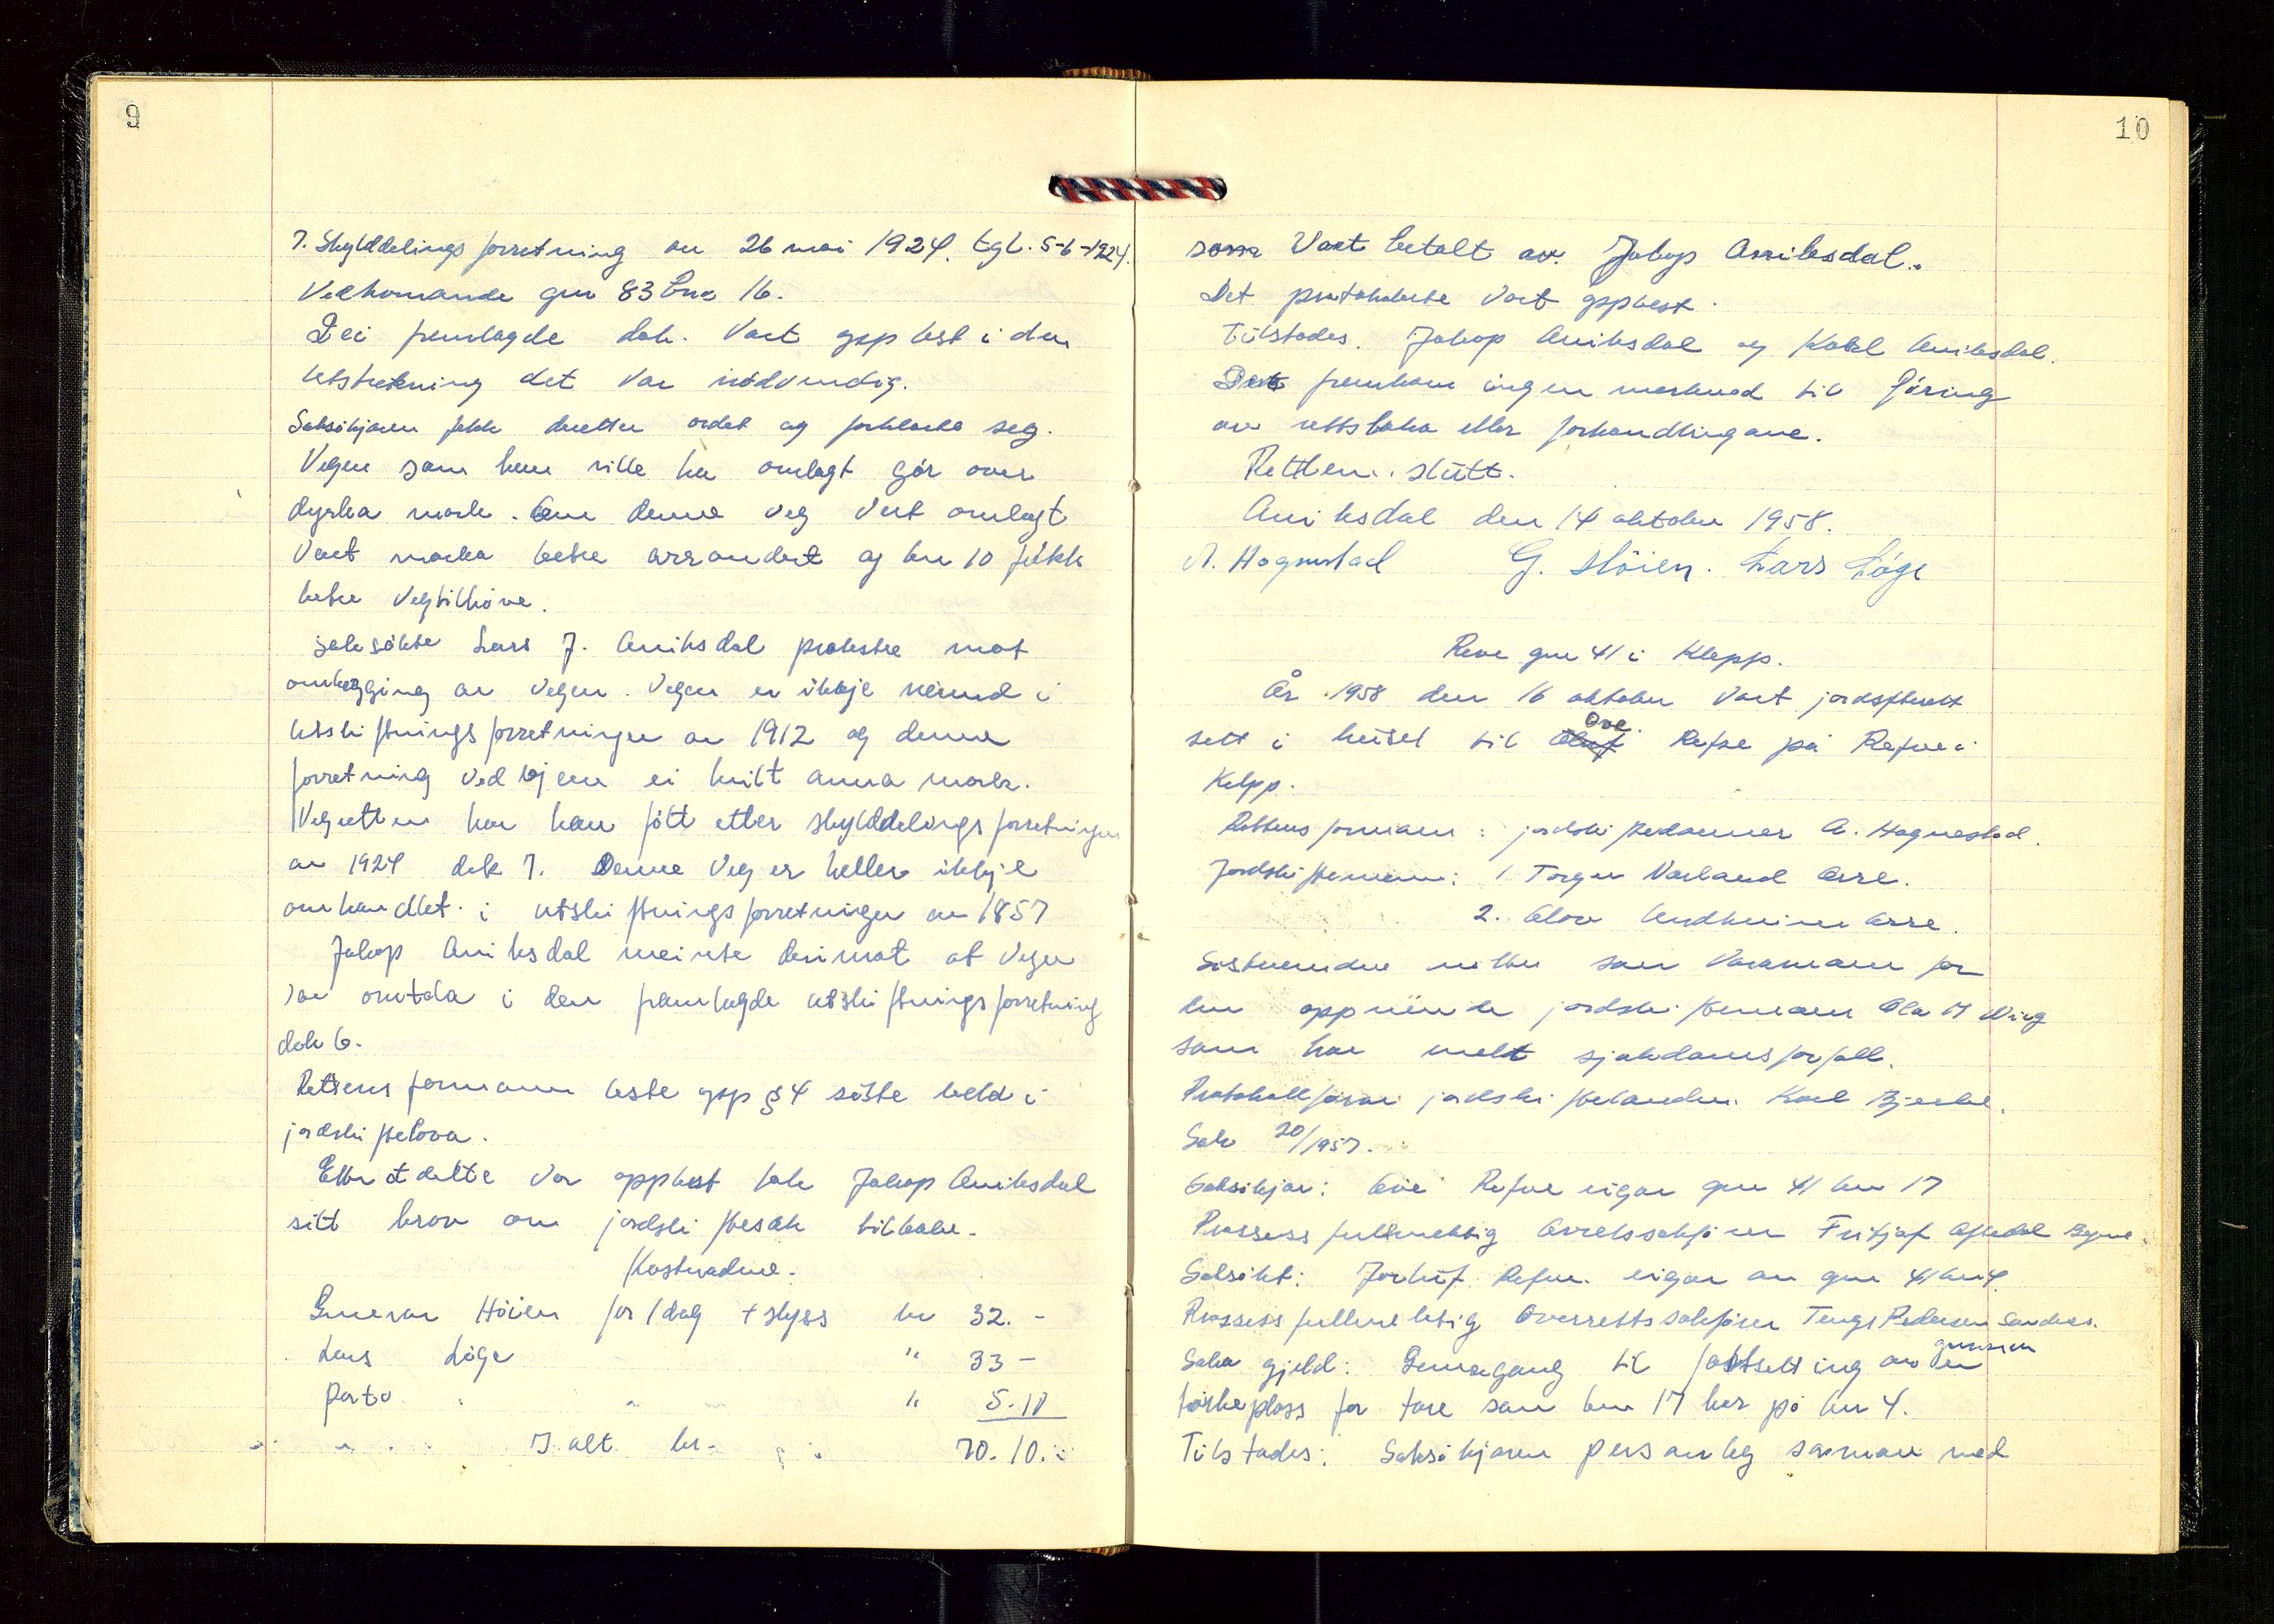 9
7. Skylddelings forretning av 26 mai 1924. tgl. 5-6-1924.
Vedkomande gnr 83 bnr 16.
Dei framlagde dok. Vart opp lest i den
utstrekning det var nødvendig.
Saksøkjaren fekk deretter ordet og forklarte seg.
Vegen som han ville ha omlagt går over
dyrka mark. Om denne veg vert omlagt
Vart marka betre arrondert og bnr 10 fekk
betre vegtilhøve.
Saksøkte Lars J. Aniksdal protestre mot
omlegging av vegen. Vegen er ikkje nemnd i
utskiftningsforretningen av 1912 og denne
forretning vedkjem ei heilt anna mark.
Vegretten har han fått etter skylddelingsforretningen
av 1924 dok 7. Denne Veg er heller ikkje
omhandlet i utskiftningsforretningen av 1857
Jakop Aniksdal meinte derimot at vegen
var omtala i den framlagde utskiftningsforretning
dok 6.
Rettens formann leste opp § 4 siste ledd i
jordskiftelova.
Etter at dette var opplest tok Jakop Aniksdal
sitt krav om jordskiftesak tilbake.
Kostnadene.
Gunnar Höien for 1 dag + skyss kr 32. -
Lars Löge " 33 -
Porto " 5.10
I alt kr. 70.10.
10
som Vart betalt av Jakop Aniksdal.
Det protokolerte vart opplest.
Tilstades. Jakop Aniksdal og Karl Aniksdal.
Det framkom ingen merknad til føring
av rettsboka eller forhandlingane.
Retten slutt.
Aniksdal den 14 oktober 1958.
A. Hognestad G. Höien. Lars Löge
Reve gnr 41 i Klepp.
År 1958 den 16 oktober vart jordskifterett
sett i huset til Oluf Ove Refve på Refve i
Kelpp.
Rettens formann: jordskiftedommer A. Hognestad.
Jordskiftemenn: 1 Torger Varland Orre.
2. Olav Andheim Orre.
Sistnemnde møtte som Varamann for
den oppnemnde jordskiftemann Ola M Wiig
som har meldt sjukdomsforfall.
Protokollførar jordskiftekandidat. Karl Bjerke.
Sak 20/1957.
Saksøkjar: Ove Refve eigar gnr 41 bnr 17
Prossess fullmektig Overrettssakfører Fritjof Aftedal Bryne.
Saksøkt: Jorluf Refve eigar av gnr 41 bnr 4.
Prossess fullmektig Overrettssakfører Tengs Pedersen Sandnes.
Saka gjeld: Grensegang til fastsetting av grensen en
tørkeplass for tare som bnr 17 har på bnr 4.
Tilstades: Saksøkjaren personleg saman med